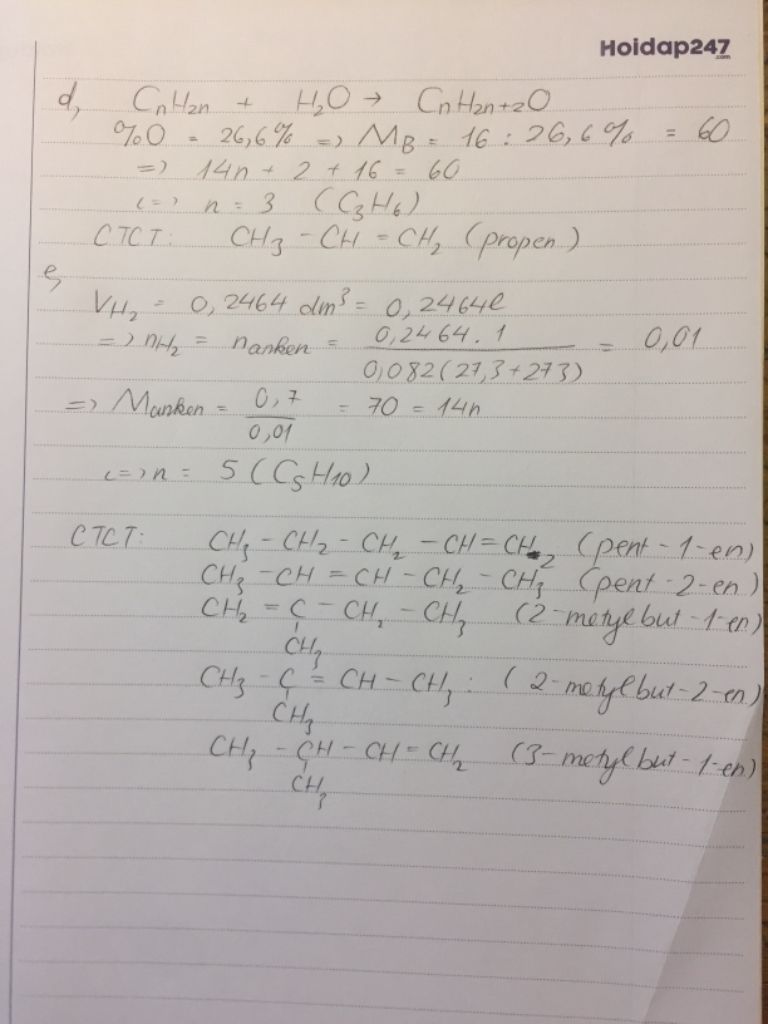 Hoidap247
.com
d, CnH2n + H2O → CnH2n+2O
%O = 26,6% => MB = 16 : 26,6% = 60
=> 14n + 2 + 16 = 60
<=> n = 3 (C3H6)
CTCT: CH3 - CH = CH2 (propen)
e,
VH2 = 0,2464 dm³ = 0,2464l
=> nH2 = nanken = 0,2464 . 1 / 0,082(27,3+273) = 0,01
=> Manken = 0,7 / 0,01 = 70 = 14n
<=> n = 5 (C5H10)
CTCT: CH3 - CH2 - CH2 - CH = CH2 (pent - 1 - en)
CH3 - CH = CH - CH2 - CH3 (pent - 2 - en)
CH2 = C - CH2 - CH3 (2 - metylbut - 1 - en)
CH3
CH3 - C = CH - CH3 : (2 - metylbut - 2 - en)
CH3
CH3 - CH - CH = CH2 (3 - metylbut - 1 - en)
CH3